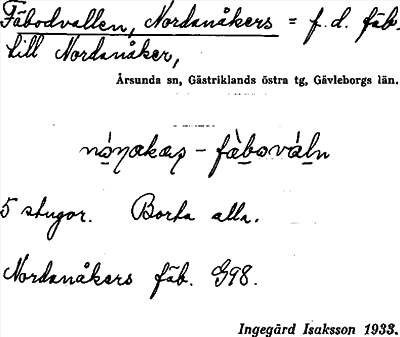 Fäbodvallen, Nordanåkers = f.d. fäb.
till Nordanåker,
Årsunda sn, Gästriklands östra tg, Gävleborgs län.
fàbovàln
5 stugor. Borta alla.
Nordanåkers fäb. G98.
Ingegärd Isaksson 1933.